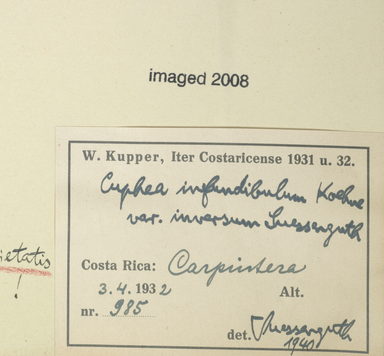 imaged 2008
W. Kupper, Iter Costaricense 1931 u. 32.
Cuphea infundibulum Koehne
var. inversum Suessenguth
ietatis
!
Costa Rica: Carpintera
3. 4. 1932 Alt.
nr. 985
det. Suessenguth
1940